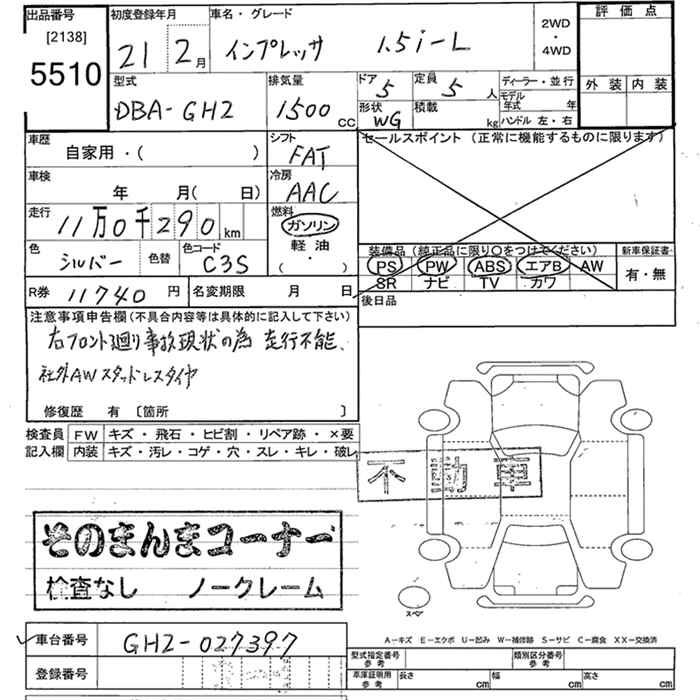 出品番号 初度登録年月 車名・グレード 2WD・4WD 評価点
[2138]
5510 21年2月 インプレッサ 1.5i-L
型式 排気量 ドア 定員 ディーラー・並行 外装 内装
DBA-GH2 1500cc 5 5人 モデル年式 年
形状 WG 積載 kg ハンドル 左・右
車歴 シフト セールスポイント(正常に機能するものに限ります)
自家用・( ) FAT
車検 冷房
年 月( 日) AAC
走行 燃料
11万0千290km ガソリン
軽油
色 シルバー 色替 色コード C3S ・( )
装備品(純正品に限り○をつけてください) 新車保証書
PS PW ABS エアB AW 有・無
SR ナビ TV カワ
R券 11740円 名変期限 月 日 後日品
注意事項申告欄(不具合内容等は具体的に記入して下さい)
右フロント廻り事故現状の為 走行不能、
社外AWスタッドレスタイヤ
修復歴 有 〔箇所 〕
検査員 FW キズ・飛石・ヒビ割・リペア跡・×要
記入欄 内装 キズ・汚レ・コゲ・穴・スレ・キレ・破レ
不動車
そのまんまコーナー
検査なし ノークレーム
スペア
A―キズ E―エクボ U―凹み W―補修跡 S―サビ C―腐食 XX―交換済
車台番号 GH2-027397
型式指定番号 参考 類別区分番号 参考
登録番号
車庫証明用 参考 長さ cm 幅 cm 高さ cm